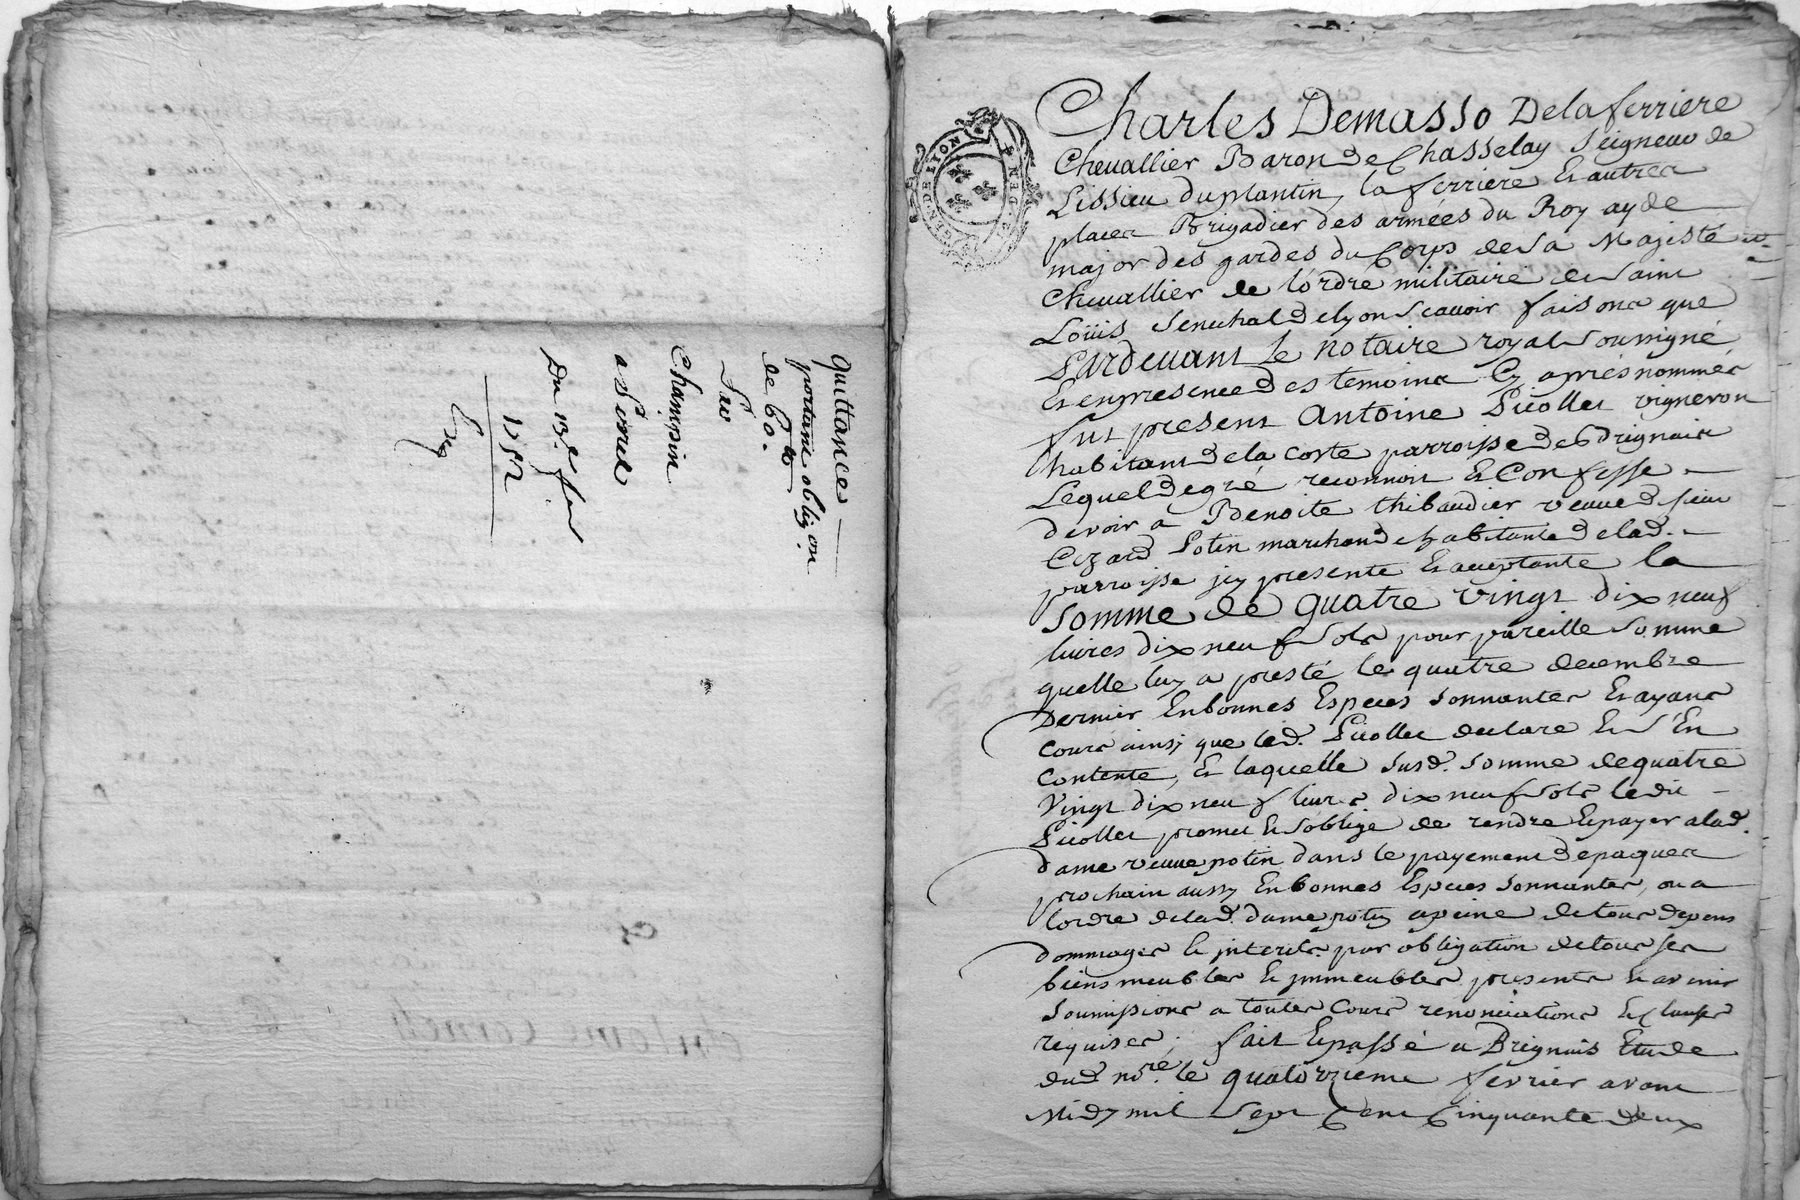 Quittance
portant obligion
de 60.#
Sr
Champin
a
Du 13e fev
1752
Charles Demasso Delaferriere
Chevallier Baron de Chasselay Seigneur de
Lissieu duplantin, la ferriere Et autres
places Brigadier des armées du Roy ayde
major des gardes du Corps de Sa Majesté et
Chevallier de l'ordre militaire de Saint
Loüis Senechal de lyon Scavoir faisons que
Pardevant Le notaire royal Soussigné
Et en presence des temoins Cy apres nommés
fut present Antoine Picollet vigneron
habitant de la coste parroisse de Brignais
Lequel de gré reconnoit Et Confesse
devoir a Benoite thibaudier veuve de sieur
Cezard Potin marchand habitante de lad.
parroisse jcy presente Et acceptante la
Somme de quatre vingt dix neuf
livres dix neuf Sols pour pareille Somme
quelle luy a presté le quatre decembre
Dernier En bonnes Especes Sonnantes Et ayant
Cours ainsj que led. Picollet declare Et S'En
Contente, Et laquelle Susd. Somme de quatre
Vingt dix neuf livres dix neuf Sols ledit
Picollet promet Et Soblige de rendre Et payer a lad.
dame veuve potin dans le payement de paques
prochain aussy En bonnes Especes Sonnantes, ou a
lordre de lad. dame potin a peine de tous depens
dommages Et jnterets par obligation de tous ses
biens meubles Et jmmeubles presents Et avenir
Soumissions a toutes Cours renonciations Et clauses
requises; fait Et passé a Brignais Etude
dud. nore. le quatorzieme fevrier avant
Midy mil Sept Cent Cinquante deux
GEN DE LYON